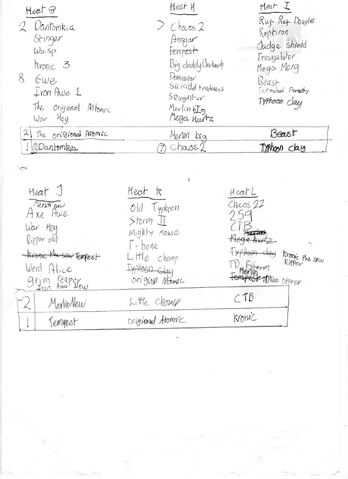 Heat G
2 Dantomkia
Stinger
Wasp
Kronic 3
8 Gwe
Iron Awe 1
The origional Attomic
War Hog
Heat H
> Chaos 2
Ansgar
Tempest
Big daddy
Suicidal
Slaughter
Merlin big
Mega Hurtz
Heat I
Ruf Ruf Dougle
Reptiron
Judge Shred
Triangulator
Mega Morg
Beast
Terminal
Typhoon Clay
2 The origional Atomic Merlin big Beast
1 Dantomkia Chaos 2 Typhoon clay
Heat J
Merlin New
Axe Awe
War Hog
Ripper old
Kronic the saw Tempest
Weird Alice
grim reaper
Iron Awe New
Heat K
Old Typhoon
Storm II
Mighty Mouse
T-bone
Little chomp
Typhoon clay
origional Atomic
Heat L
Chaos 22
259
CTB
Mega hurtz
Typhoon clay Kronic the saw
Ripper
Merlin
Tempest opener
2 Merlin New Little Chomp CTB
1 Tempest origional Atomic Kronic